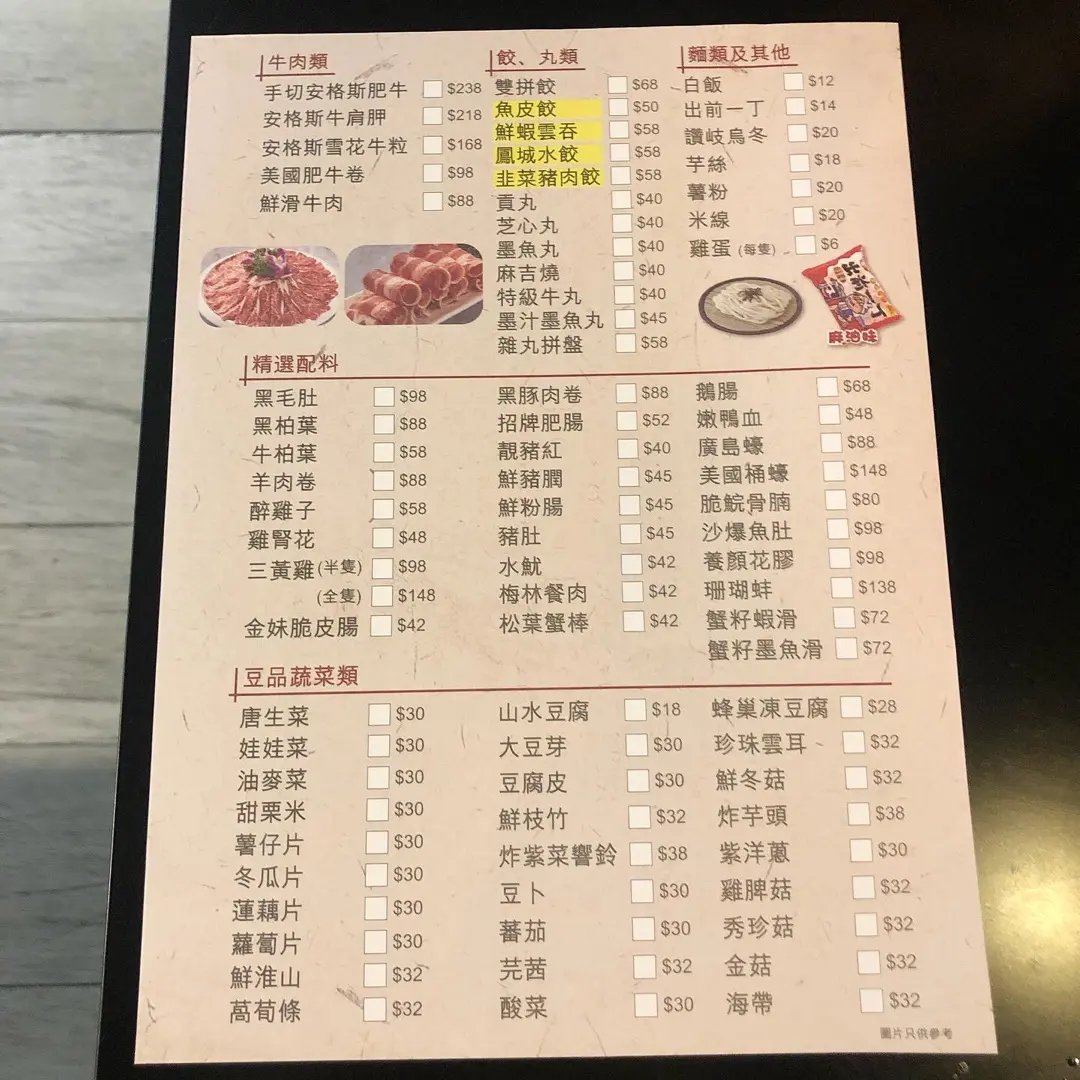 牛肉類
手切安格斯肥牛 $238
安格斯牛肩胛 $218
安格斯雪花牛粒 $168
美國肥牛卷 $98
鮮滑牛肉 $88
餃、丸類
雙拼餃 $68
魚皮餃 $50
鮮蝦雲吞 $58
鳳城水餃 $58
韭菜豬肉餃 $58
貢丸 $40
芝心丸 $40
墨魚丸 $40
麻吉燒 $40
特級牛丸 $40
墨汁墨魚丸 $45
雜丸拼盤 $58
麵類及其他
白飯 $12
出前一丁 $14
讚岐烏冬 $20
芋絲 $18
薯粉 $20
米線 $20
雞蛋 (每隻) $6
出前一丁
麻油味
精選配料
黑毛肚 $98
黑柏葉 $88
牛柏葉 $58
羊肉卷 $88
醉雞子 $58
雞腎花 $48
三黃雞 (半隻) $98
(全隻) $148
金妹脆皮腸 $42
黑豚肉卷 $88
招牌肥腸 $52
靚豬紅 $40
鮮豬膶 $45
鮮粉腸 $45
豬肚 $45
水魷 $42
梅林餐肉 $42
松葉蟹棒 $42
鵝腸 $68
嫩鴨血 $48
廣島蠔 $88
美國桶蠔 $148
脆鯇骨腩 $80
沙爆魚肚 $98
養顏花膠 $98
珊瑚蚌 $138
蟹籽蝦滑 $72
蟹籽墨魚滑 $72
豆品蔬菜類
唐生菜 $30
娃娃菜 $30
油麥菜 $30
甜粟米 $30
薯仔片 $30
冬瓜片 $30
蓮藕片 $30
蘿蔔片 $30
鮮淮山 $32
萵荀條 $32
山水豆腐 $18
大豆芽 $30
豆腐皮 $30
鮮枝竹 $32
炸紫菜響鈴 $38
豆卜 $30
蕃茄 $30
芫茜 $32
酸菜 $30
蜂巢凍豆腐 $28
珍珠雲耳 $32
鮮冬菇 $32
炸芋頭 $38
紫洋蔥 $30
雞脾菇 $32
秀珍菇 $32
金菇 $32
海帶 $32
圖片只供參考